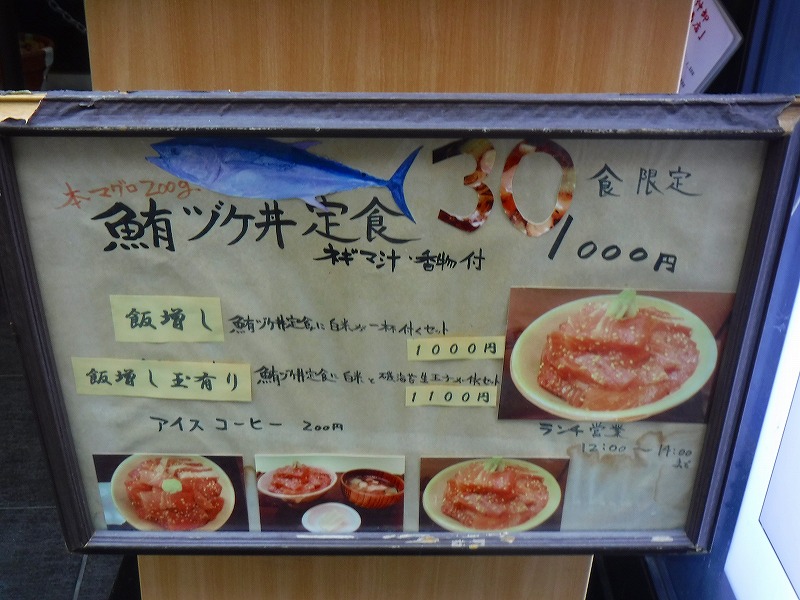 本マグロ200g
30食限定
鮪ヅケ丼定食
1000円
ネギマ汁・香物付
飯増し 鮪ヅケ丼定食に白米が一杯付くセット
1000円
飯増し玉有り 鮪ヅケ丼定食に白米と磯海苔生玉子が付くセット
1100円
アイスコーヒー 200円
ランチ営業
12:00〜14:00
まで